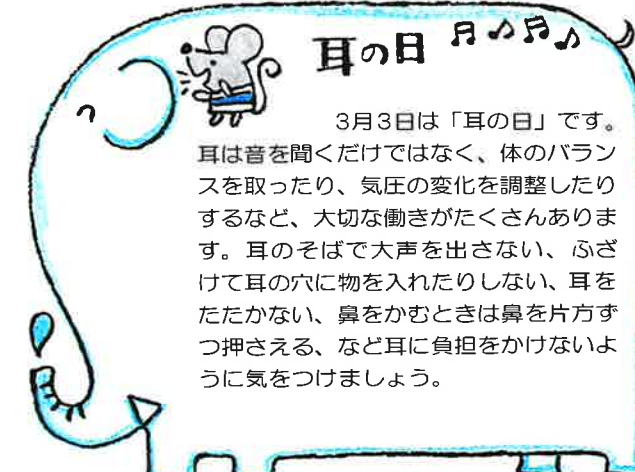 耳の日
3月3日は「耳の日」です。
耳は音を聞くだけではなく、体のバラン
スを取ったり、気圧の変化を調整したり
するなど、大切な働きがたくさんありま
す。耳のそばで大声を出さない、ふざ
けて耳の穴に物を入れたりしない、耳を
たたかない、鼻をかむときは鼻を片方ず
つ押さえる、など耳に負担をかけないよ
うに気をつけましょう。